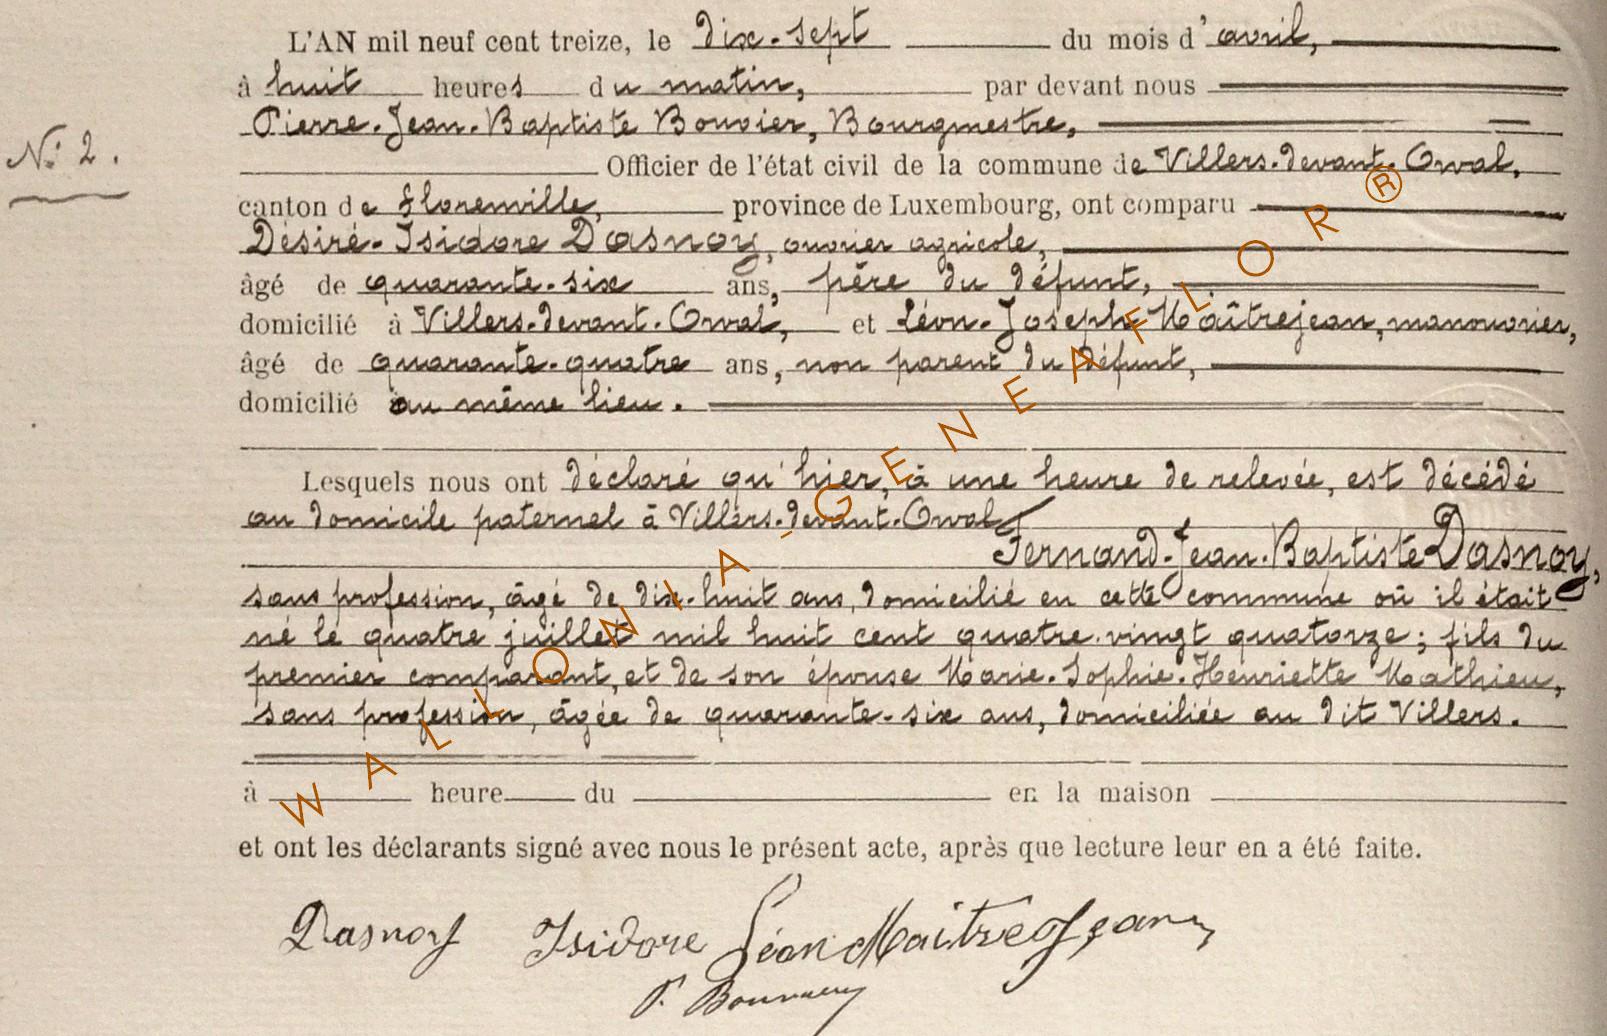 L'AN mil neuf cent treize, le dix-sept du mois d'avril,
à huit heures du matin, par devant nous
Pierre-Jean-Baptiste Bouvier, Bourgmestre,
N° 2.
Officier de l'état civil de la commune de Villers-devant-Orval,
canton de Florenville, province de Luxembourg, ont comparu
Désiré-Isidore Dasnoy, ouvrier agricole,
âgé de quarante-six ans, père du défunt,
domicilié à Villers-devant-Orval, et Léon-Joseph Maîtrejean, manouvrier,
âgé de quarante-quatre ans, non parent du défunt,
domicilié au même lieu.
Lesquels nous ont déclaré qu'hier, à une heure de relevée, est décédé
au domicile paternel à Villers-devant-Orval
Fernand-Jean-Baptiste Dasnoy,
sans profession, âgé de dix-huit ans, domicilié en cette commune où il était
né le quatre juillet mil huit cent quatre-vingt quatorze; fils du
premier comparant, et de son épouse Marie-Sophie-Henriette Mathieu,
sans profession, âgée de quarante-six ans, domiciliée au dit Villers.
à heure du en la maison
et ont les déclarants signé avec nous le présent acte, après que lecture leur en a été faite.
Dasnoy Isidore Léon Maitrejean
P. Bouvier
WALLONIA-GENEAFLOR®